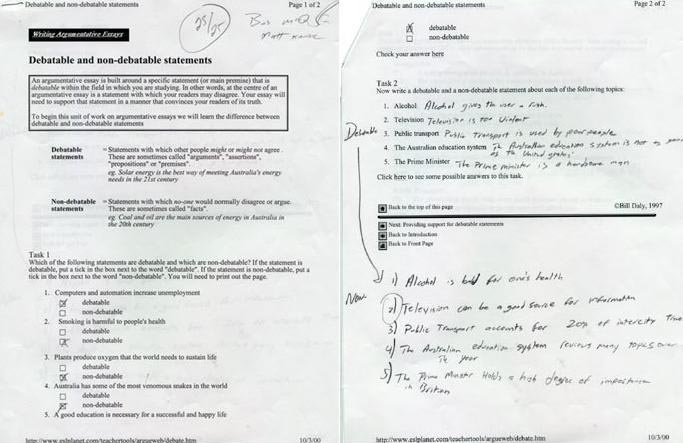 Debatable and non-debatable statements
Page 1 of 2
25/25
Writing Argumentative Essays
Debatable and non-debatable statements
An argumentative essay is built around a specific statement (or main premise) that is
debatable within the field in which you are studying. In other words, at the centre of an
argumentative essay is a statement with which your readers may disagree. Your essay will
need to support that statement in a manner that convinces your readers of its truth.
To begin this unit of work on argumentative essays we will learn the difference between
debatable and non-debatable statements
Debatable statements
= Statements with which other people might or might not agree.
These are sometimes called "arguments", "assertions",
"propositions" or "premises".
eg. Solar energy is the best way of meeting Australia's energy
needs in the 21st century
Non-debatable statements
= Statements which no-one would normally disagree or argue.
These are sometimes called "facts".
eg. Coal and oil are the main sources of energy in Australia in
the 20th century
Task 1
Which of the following statements are debatable and which are non-debatable? If the statement is
debatable, put a tick in the box next to the word "debatable". If the statement is non-debatable, put a
tick in the box next to the word "non-debatable". You will need to print out the page.
1. Computers and automation increase unemployment
debatable
non-debatable
2. Smoking is harmful to people's health
debatable
non-debatable
3. Plants produce oxygen that the world needs to sustain life
debatable
non-debatable
4. Australia has some of the most venomous snakes in the world
debatable
non-debatable
5. A good education is necessary for a successful and happy life
http://www.eslplanet.com/teachertools/argueweb/debate.htm
10/3/00
Debatable and non-debatable statements
Page 2 of 2
debatable
non-debatable
Check your answer here
Task 2
Now write a debatable and a non-debatable statement about each of the following topics:
1. Alcohol Alcohol gives the user a rush.
2. Television Television is too violent
Debatable
3. Public transport Public Transport is used by poor people
4. The Australian education system The Australian education system is not as
as the United states.
5. The Prime Minister The Prime minister is a handsome man
Click here to see some possible answers to this task.
Back to the top of this page
©Bill Daly, 1997
Next: Providing support for debatable statements
Back to Introduction
Back to Front Page
1) Alcohol is bad for one's health
2) Television can be a good source for information
3) Public Transport accounts for 20% of intercity
4) The Australian education system reviews many topics over
the year
5) The Prime Minister Holds a high degree of importance
in Britain
http://www.eslplanet.com/teachertools/argueweb/debate.htm
10/3/00